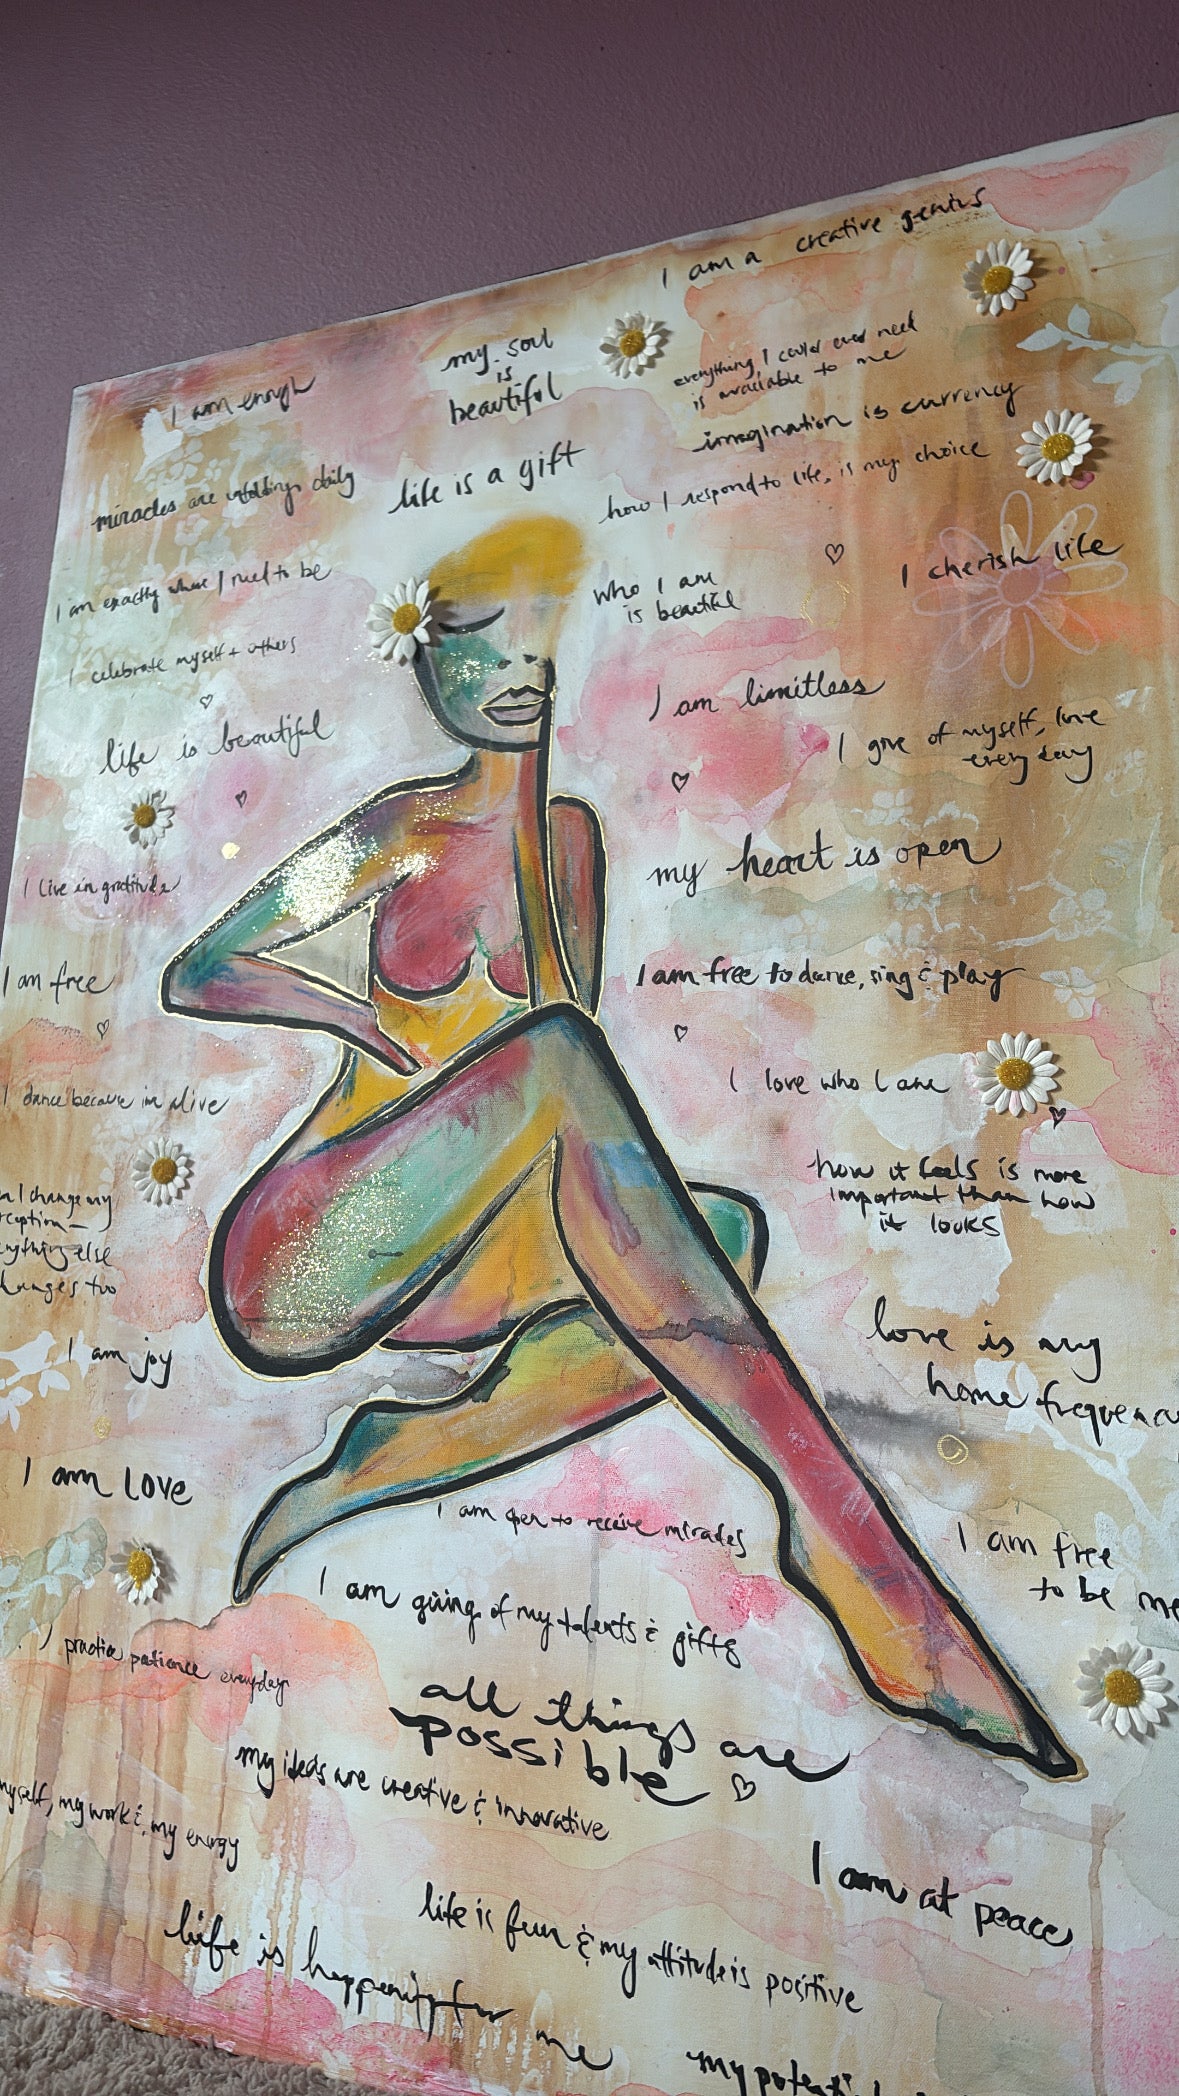 I am a creative genius
my soul
is
beautiful
everything I could ever need
is available to me
I am enough
imagination is currency
life is a gift
how I respond to life, is my choice
miracles are unfolding daily
I cherish life
who I am
is beautiful
I am exactly where I need to be
I celebrate myself + others
I am limitless
life is beautiful
I give of myself, love
every day
my heart is open
I live in gratitude
I am free
I am free to dance, sing & play
I love who I am
I dance because im alive
how it feels is more
important than how
it looks
I change my
else
changes too
love is my
home
I am joy
I am love
I am open to receive miracles
I am free
to be me
I am giving of my talents & gifts
I practice patience everyday
all things are
possible
my ideas are creative & innovative
myself, my work &, my energy
I am at peace
life is fun & my attitude is positive
life is happening for
me
my